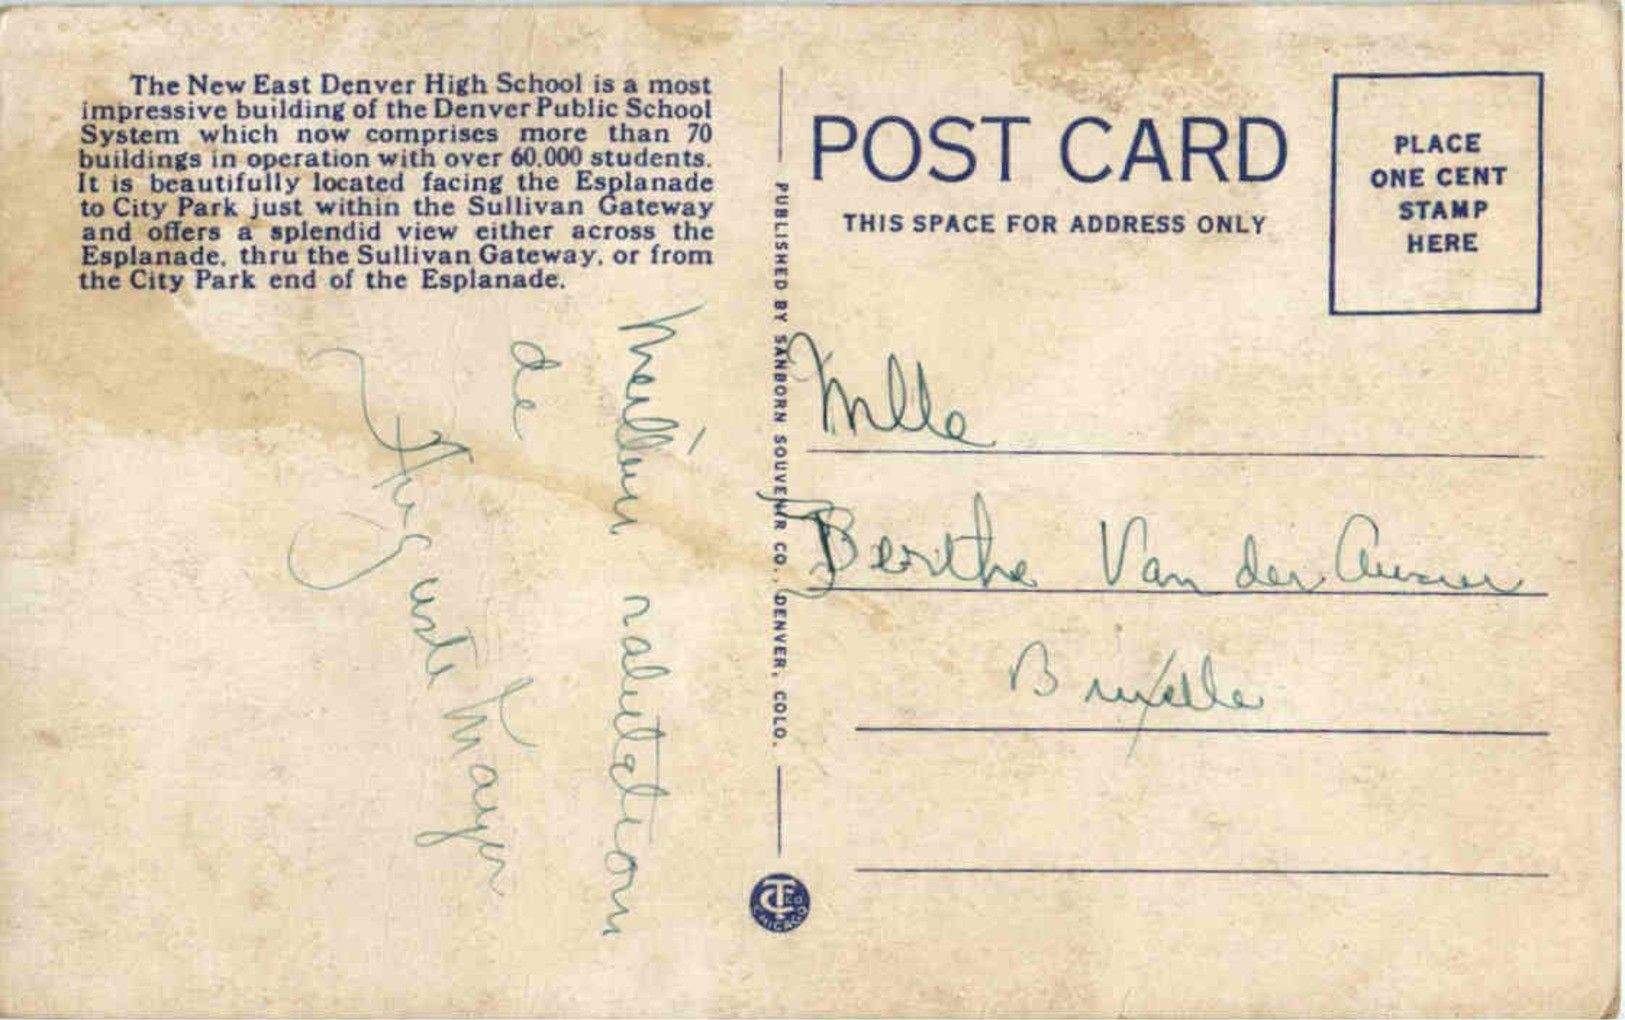 The New East Denver High School is a most
impressive building of the Denver Public School
System which now comprises more than 70
buildings in operation with over 60,000 students.
It is beautifully located facing the Esplanade
to City Park just within the Sullivan Gateway
and offers a splendid view either across the
Esplanade, thru the Sullivan Gateway, or from
the City Park end of the Esplanade.
salutation
de
Auguste Mayer
PUBLISHED BY SANBORN SOUVENIR CO., DENVER, COLO.
CT CO
CHICAGO
POST CARD
THIS SPACE FOR ADDRESS ONLY
PLACE
ONE CENT
STAMP
HERE
Mlle
Berthe Van der
Bruxelle